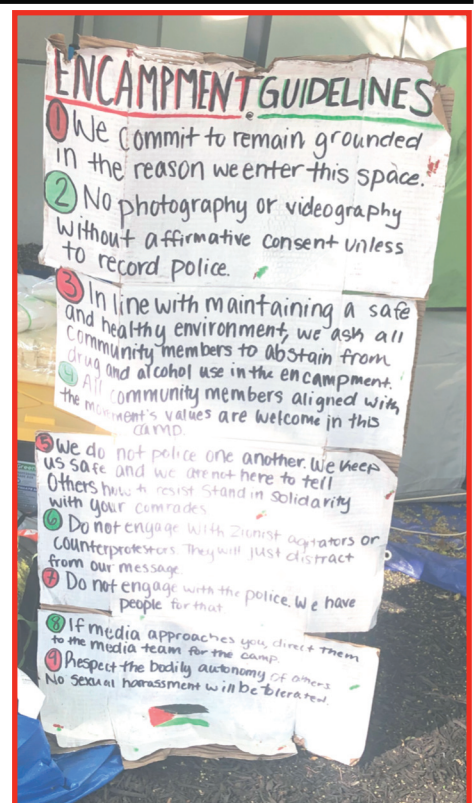 ENCAMPMENT GUIDELINES
1 We commit to remain grounded
in the reason we enter this space.
2 No photography or videography
without affirmative consent unless
to record police.
3 In line with maintaining a safe
and healthy environment, we ask all
community members to abstain from
drug and alcohol use in the encampment.
4 All community members aligned with
the movement's values are welcome in this
camp.
5 We do not police one another. We keep
us safe and we are not here to tell
others how to resist Stand in Solidarity
with your comrades
6 Do not engage with Zionist agitators or
counterprotestors. They will just distract
from our message.
7 Do not engage with the police. We have
people for that
8 If media approaches you, direct them
to the media team for the camp.
9 Respect the bodily autonomy of others
No sexual harrassment will be tolerated.